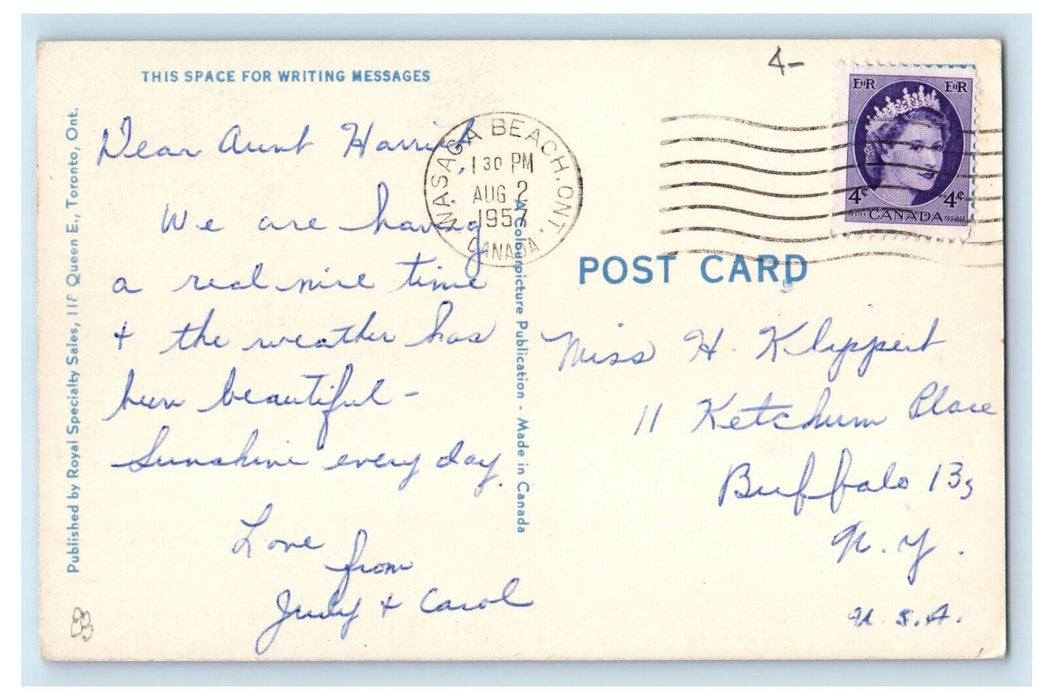 THIS SPACE FOR WRITING MESSAGES
4-
Dear Aunt Harriet,
We are having
a real nice time
+ the weather has
been beautiful -
Sunshine every day.
Love
from
Judy + Carol
Published by Royal Specialty Sales, Queen E., Toronto, Ont.
A Colourpicture Publication - Made in Canada
WASAGA BEACH, ONT.
1 30 PM
AUG 2
1957
CANADA
E II R E II R
4¢ 4¢
CANADA
POST CARD
Miss H. Klippert
11 Ketchum Place
Buffalo 13,
N.Y.
U.S.A.